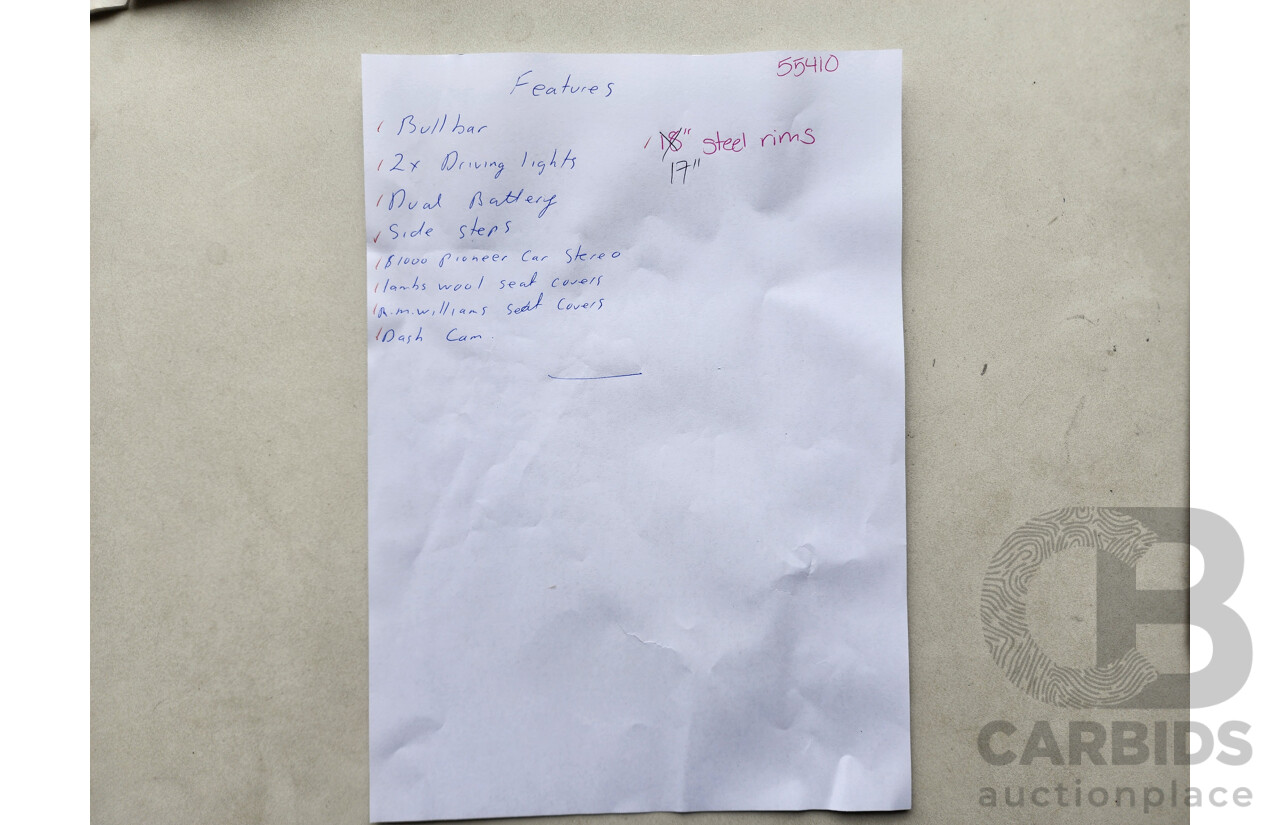 55410
Features
Bullbar
2x Driving lights
Dual Battery
Side steps
$1000 Pioneer Car Stereo
lambs wool seat covers
R.M.williams seat Covers
Dash Cam.
18" steel rims
17"
CARBIDS
auctionplace